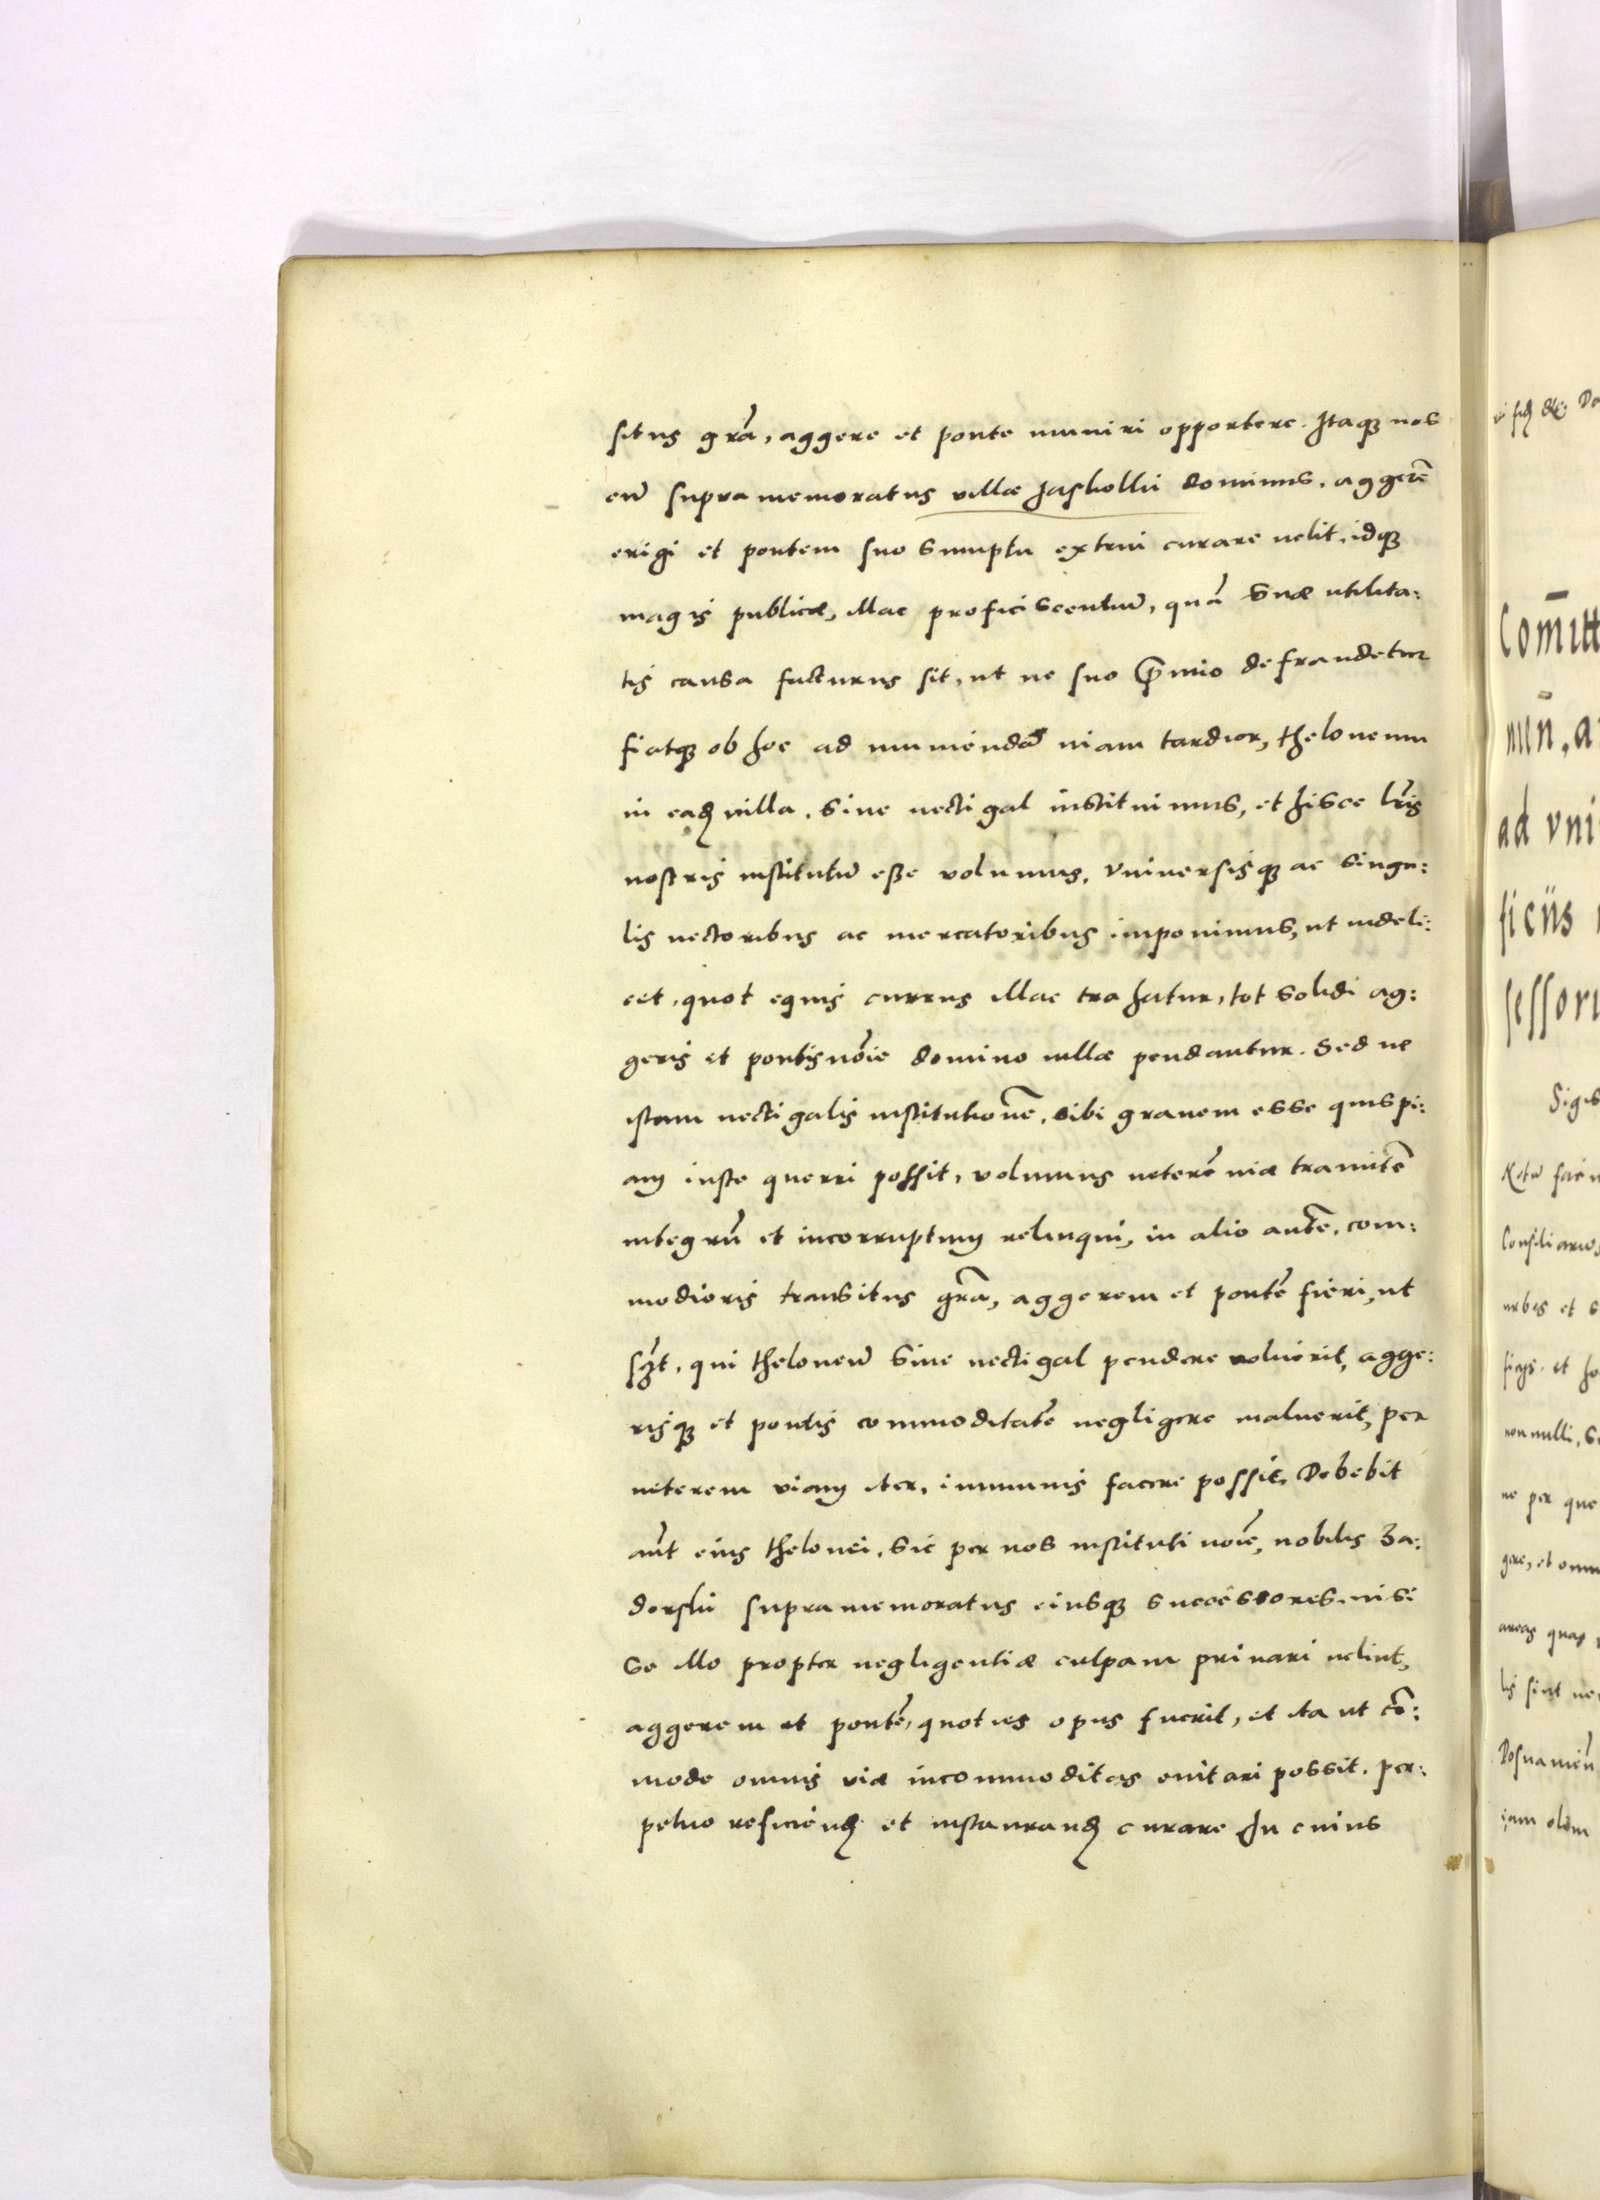 situs grã, aggere et ponte muniri opportere. Itaqꝫ nos
cũ supra memoratus villæ Jaskollii dominus, aggerẽ
erigi et pontem suo sumptu extrui curare velit, idqꝫ
magis publicæ, illac proficiscentiũ, quã suæ utilita:
tis causa facturus sit, ut ne suo p̃mio defraudetur
fiatqꝫ ob hoc ad muniendã viam tardior, theloneum
in eadẽ villa, sive vectigal instituimus, et hisce lr̃is
nostris institutũ esse volumus, Vniversisqꝫ ac singu:
lis vectoribus ac mercatoribus imponimus, ut videli:
cet, quot equis currus illac trahatur, tot solidi ag:
geris et pontis nõie domino villæ pendantur. Sed ne
istam vectigalis institutionẽ, sibi gravem esse quispi:
am iuste queri possit, volumus veterẽ viæ tramitẽ
integrũ et incorruptum relinqui, in alio autẽ, com:
modioris transitus grã, aggerem et pontẽ fieri, ut
scꝫt, qui theloneũ sive vectigal pendere noluerit, agge:
risqꝫ et pontis commoditatẽ negligere maluerit, per
veterem viam iter, immunis facere possit, Debebit
aũt eius thelonei, sic per nos instituti nõie, nobilis Za:
dorski supra memoratus eiusqꝫ successores, nisi
se illo propter negligentiæ culpam privari velint,
aggerem et pontẽ, quoties opus fuerit, et ita ut cõ:
mode omnis viæ incommoditas evitari possit, per:
petuo reficiendũ et instaurandũ curare In cuius
Comitt
min̄, a
ad vni
ficiis
sessori
Sigis
Consiliarius
urbis et s
nonnulli, S
ne per que
gere, et omn
areas quas
lis sint ne
iam olim